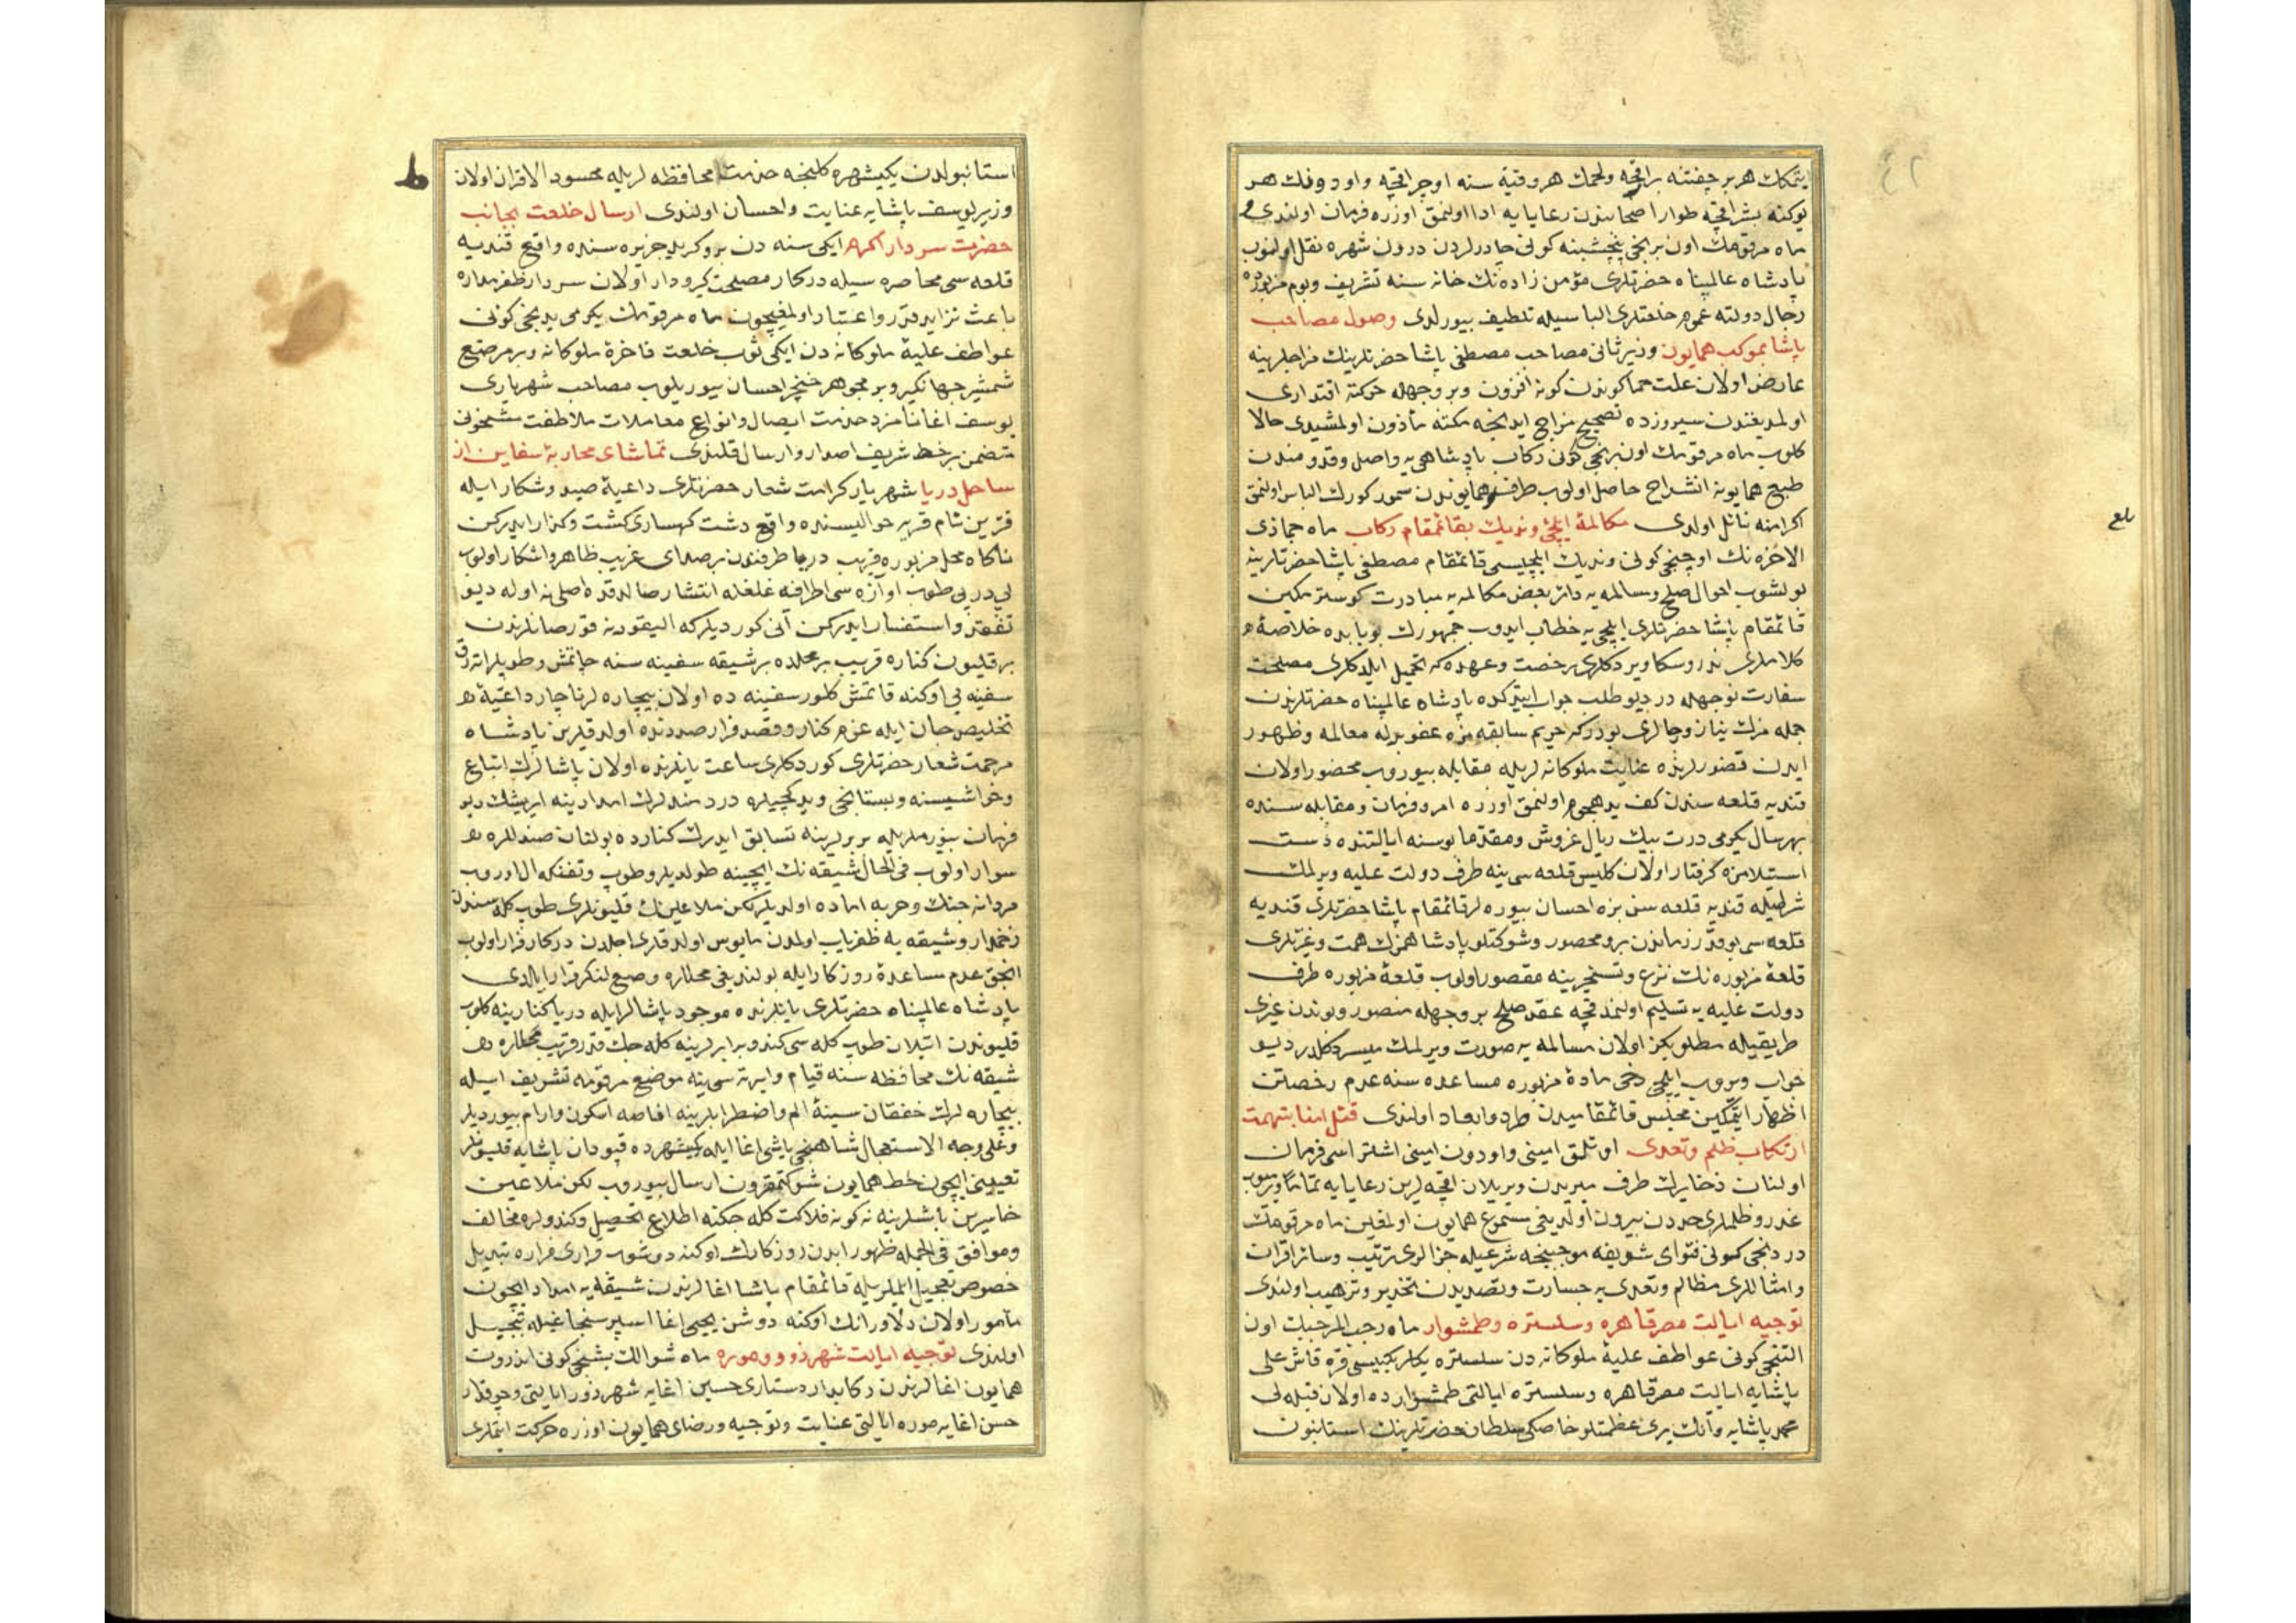 ایتمكك هر بر چفتنه بر اقچه ولحمك هر وقیه سنه اوچر اقچه واودونك هر
یوكنه بشر اقچه طوار اصحابندن رعایایه ادا اولنمق اوزره فرمان اولندی و
ماه مرقومك اون برنجی پنچشبنه كونی چادرلردن درون شهره نقل اولنوب
پادشاه عالمپناه حضرتلری مؤمن زاده نك خانه سنه تشریف ویوم مزبورده
رجال دولته عموم خلعتلری الباسیله تلطیف بیورلدی وصول مصاحب
پاشا بموكب همایون وزیر ثانی مصاحب مصطفی پاشا حضرتلرینك مزاجلرینه
عارض اولان علت حما كوندن كونه افزون وبر وجهله حركته اقتداری
اولمدیغندن سیروزده تصحیح مزاج ایدنجه مكثه مأذون اولمشیدی حالا
كلوب ماه مرقومك اون برنجی كونی ركاب پادشاهی یه واصل وقدومندن
طبع همایونه انشراح حاصل اولوب طرف همایوندن سمور كورك الباس اولنمق
اكرامنه نائل اولدی مكالمۀ ایلچئ وندیك بقائمقام ركاب ماه جماذی
الاخره نك اوچنجی كونی وندیك ایلچیسی قائمقام مصطفی پاشا حضرتلرینه
بولشوب احوال صلح ومسالمه یه دائر بعض مكالمه یه مبادرت كوستر مكین
قائمقام پاشا حضرتلری ایلچی یه خطاب ایدوب جمهورك بوبابده خلاصۀ
كلاملری ندر وسكا ویردكلری رخصت وعهده كه تحمیل ایلدكلری مصلحت
سفارت نوجهله در دیو طلب جواب ایتدكده پادشاه عالمپناه حضرتلرندن
جمله مزك نیاز ورجالری بودركه جریم سابقه مزه عفو ایله معامله وظهور
ایدن قصورلرنده عنایت ملوكانه لریله مقابله بیوروب محصور اولان
قندیه قلعه سندن كف ید هجوم اولنمق اوزره امر وفرمان ومقابله سنده
بهرسال یكرمی درت بیك ریال غروش ومقدما بوسنه ایالتنده دست
استیلامزه كرفتار اولان كلیس قلعه سی ینه طرف دولت علیه ویرلمك
شرطیله قندیه قلعه سن بزه احسان بیوره لر قائمقام پاشا حضرتلری قندیه
قلعه سی بوقدر زماندن برو محصور وشوكتلو پادشاهمزك همت وغیرتلری
قلعۀ مزبوره نك نزع وتسخیرینه مقصور اولوب قلعۀ مزبوره طرف
دولت علیه یه تسلیم اولنمدقچه عقد صلح بر وجهله متصور وبوندن غیری
طریقیله مطلوبكز اولان مسالمه یه صورت ویرلمك میسر دكلدر دیو
جواب ویروب ایلچی دخی مادۀ مزبوره مساعده سنه عدم رخصتن
اظهار ایتمكین مجلس قائمقامیدن طرد وابعاد اولندی قتل امنا بتهمت
ارتكاب ظلم وتعدی اوتلق امینی واودون امینی اشترا سی فرمان
اولنان ذخایرك طرف میریدن ویریلان اقچه لرین رعایایه تماماً ویرمیوب
غدر وظلملری حددن بیرون اولدیغی مسموع همایون اولمغین ماه مرقومك
دردنجی كونی فتوای شریفه موجبنجه شرعیله جزالری ترتیب وسائر اقران
وامثاللری مظالم وتعدی یه جسارت وتصدیدن تحذیر وترهیب اولندی
توجیه ایالت مصر قاهره وسلستره وطمشوار ماه رجب المرجبك اون
التنجی كونی عواطف علیۀ ملوكانه دن سلستره بكلربكیسی قره قاش علی
پاشایه ایالت مصر قاهره وسلستره ایالتی طمشوارده اولان قپله لی
محمد پاشایه وآنك یری عظمتلو خاصكی سلطان حضرتلرینك استانبون
بلغ
استانبولدن یكیشهره كلنجه خدمت محافظه لریله محسود الاقران اولان
وزیر یوسف پاشایه عنایت واحسان اولندی ارسال خلعت بجانب
حضرت سردار اكرم ایكی سنه دن برو كرید جزیره سنده واقع قندیه
قلعه سی محاصره سیله دركار مصلحت كیرودار اولان سردار ظفرمداره
باعث تزاید قدر واعتبار اولمغیچون ماه مرقومك یكرمی یدنجی كونی
عواطف علیۀ ملوكانه دن ایكی ثوب خلعت فاخرۀ ملوكانه وبر مرصع
شمشیر جهانكیر وبر مجوهر خنچر احسان بیوریلوب مصاحب شهریاری
یوسف اغا نامزد خدمت ایصال وانواع معاملات ملاطفت مشحونی
متضمن بر خط شریف اصدار وارسال قلندی تماشای محاربۀ سفاین از
ساحل دریا شهریار كرامت شعار حضرتلری داعیۀ صید وشكار ایله
قزین نام قریه حوالیسنده واقع دشت كهساری كشت وكذار ایدركن
ناكاه محل مزبوره قریب دریا طرفندن بر صدای غریب ظاهر واشكار اولوب
پی درپی طوب اوازه سی اطرافه غلغله انتشار صالدقده اصلی نه اوله دیو
تفقد واستفسار ایدركن آنی كوردیلركه الیقودنه قورصانلرندن
بر قلیون كناره قریب بر محلده بر شیقه سفینه سنه چاتمش وطوپلر اته رق
سفینه یی اوكنه قاتمش كلور سفینه ده اولان بیچاره لر ناچار داعیۀ
تخلیص جان ایله عزم كنار وقصد فرار صددنده اولدقلرین پادشاه
مرحمت شعار حضرتلری كوردكلری ساعت یانلرنده اولان پاشالرك اتباع
وحواشیسنه وبستانجی ویدكچیلره دردمندلرك امدادینه ایریشك دیو
فرمان بیورملریله بربرلرینه تسابق ایدرك كنارده بولنان صندللره
سوار اولوب فی الحال شیقه نك ایچینه طولدیلر وطوپ وتفنكه ال اوروب
مردانه جنك وحربه اماده اولدیلر لكن ملاعینك قلیونلری طوب كله سندن
زخمدار وشیقه یه ظفریاب اولمدن مایوس اولدقلری اجلدن دركار فرار اولوب
انجق عدم مساعدۀ روزكار ایله بولندیغی محللره وضع لنكر قرار ایلدی
پادشاه عالمپناه حضرتلری یانلرنده موجود پاشالر ایله دریا كنارینه كلوب
قلیوندن اتیلان طوب كله سی كندو برابرلرینه كله جك قدر قریب محللره
شیقه نك محافظه سنه قیام وایرته سی ینه موضع مرقومه تشریف ایله
بیچاره لرك خفقان سینۀ الم واضطرابلرینه افاضه اسكون وارام بیوردیلر
وعلی وجه الاستعجال شاهنجی باشی اغا ایله یكیشهرده قپودان پاشایه قلیونلر
تعیینی ایچون خط همایون شوكتمقرون ارسال بیوروب لكن ملاعین
خاسرین باشلرینه نه كونه فلاكت كله جكنه اطلاع تحصیل وكندولره مخالف
وموافق فی الجمله ظهور ایدن روزكارك اوكنه دوشوب قراری فراره تبدیل
خصوص تعجیل ایتملریله قائمقام پاشا اغالرندن شیقه یه امداد ایچون
مأمور اولان دلاورانك اوكنه دوشن یحیی اغا اسپر سنجاغیله تبجیل
اولندی توجیه ایالت شهرزور وموره ماه شوالك بشنجی كونی اندروت
همایون اغالرندن ركابدار دستاری حسین اغایه شهرزور ایالتی وچوقدار
حسن اغایه موره ایالتی عنایت وتوجیه ورضای همایون اوزره حركت ایتملری